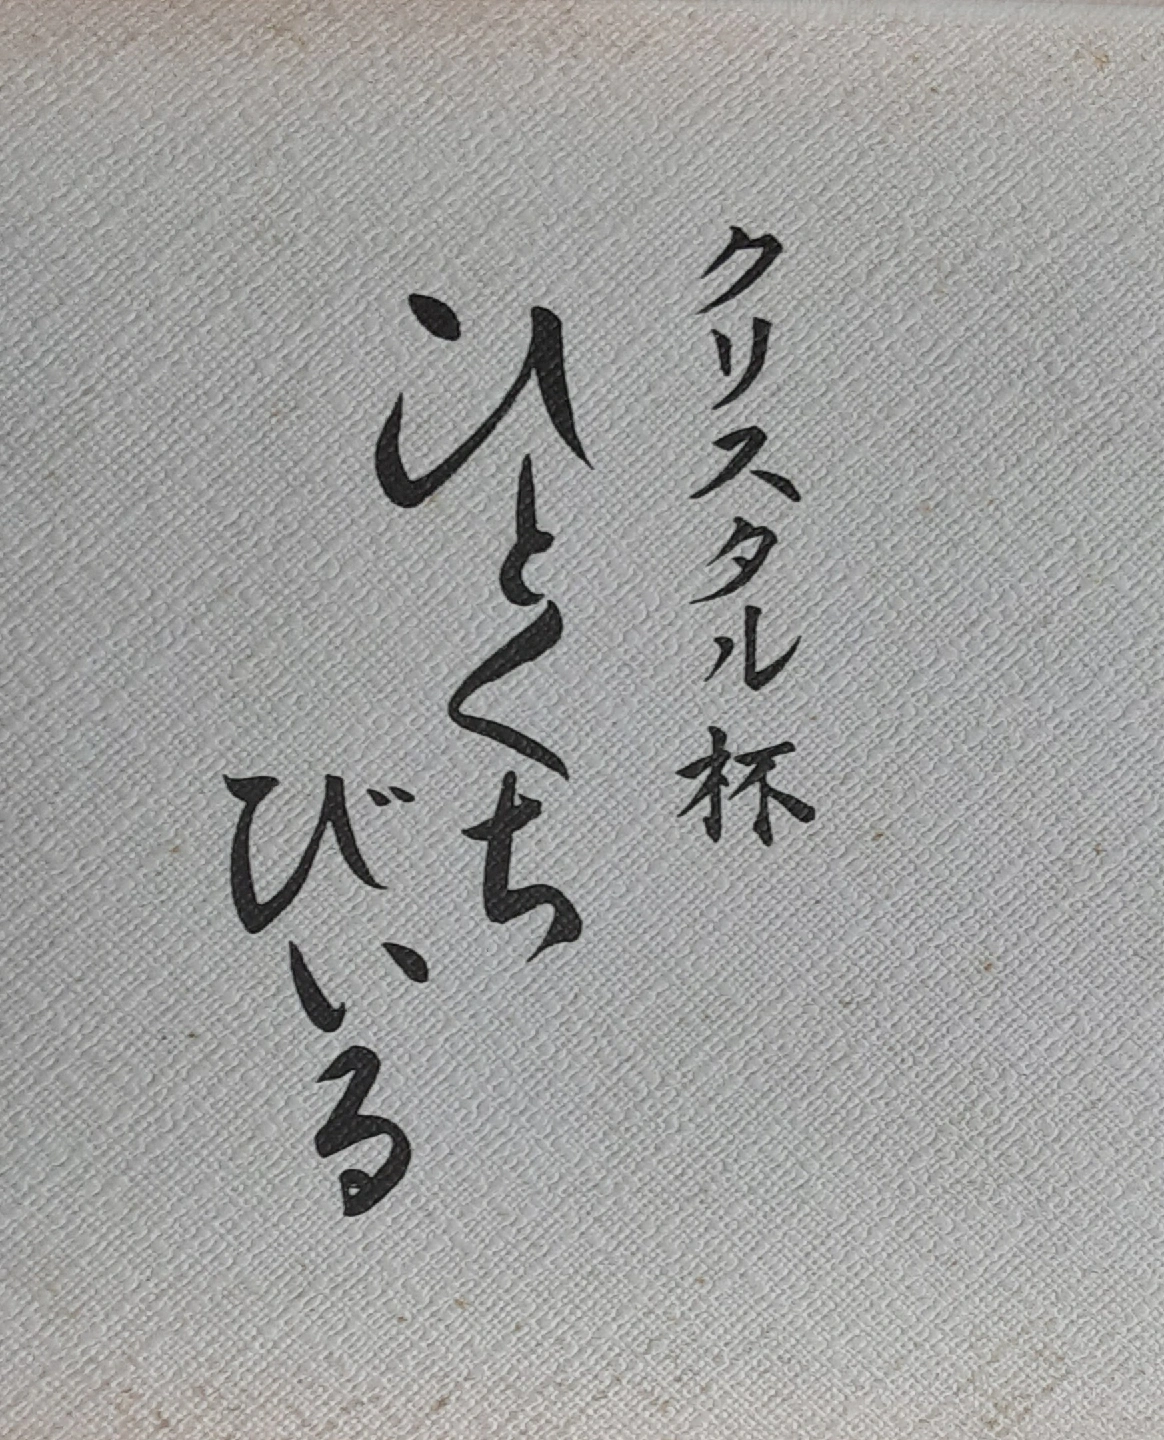 クリスタル杯
ひとくち
びいる